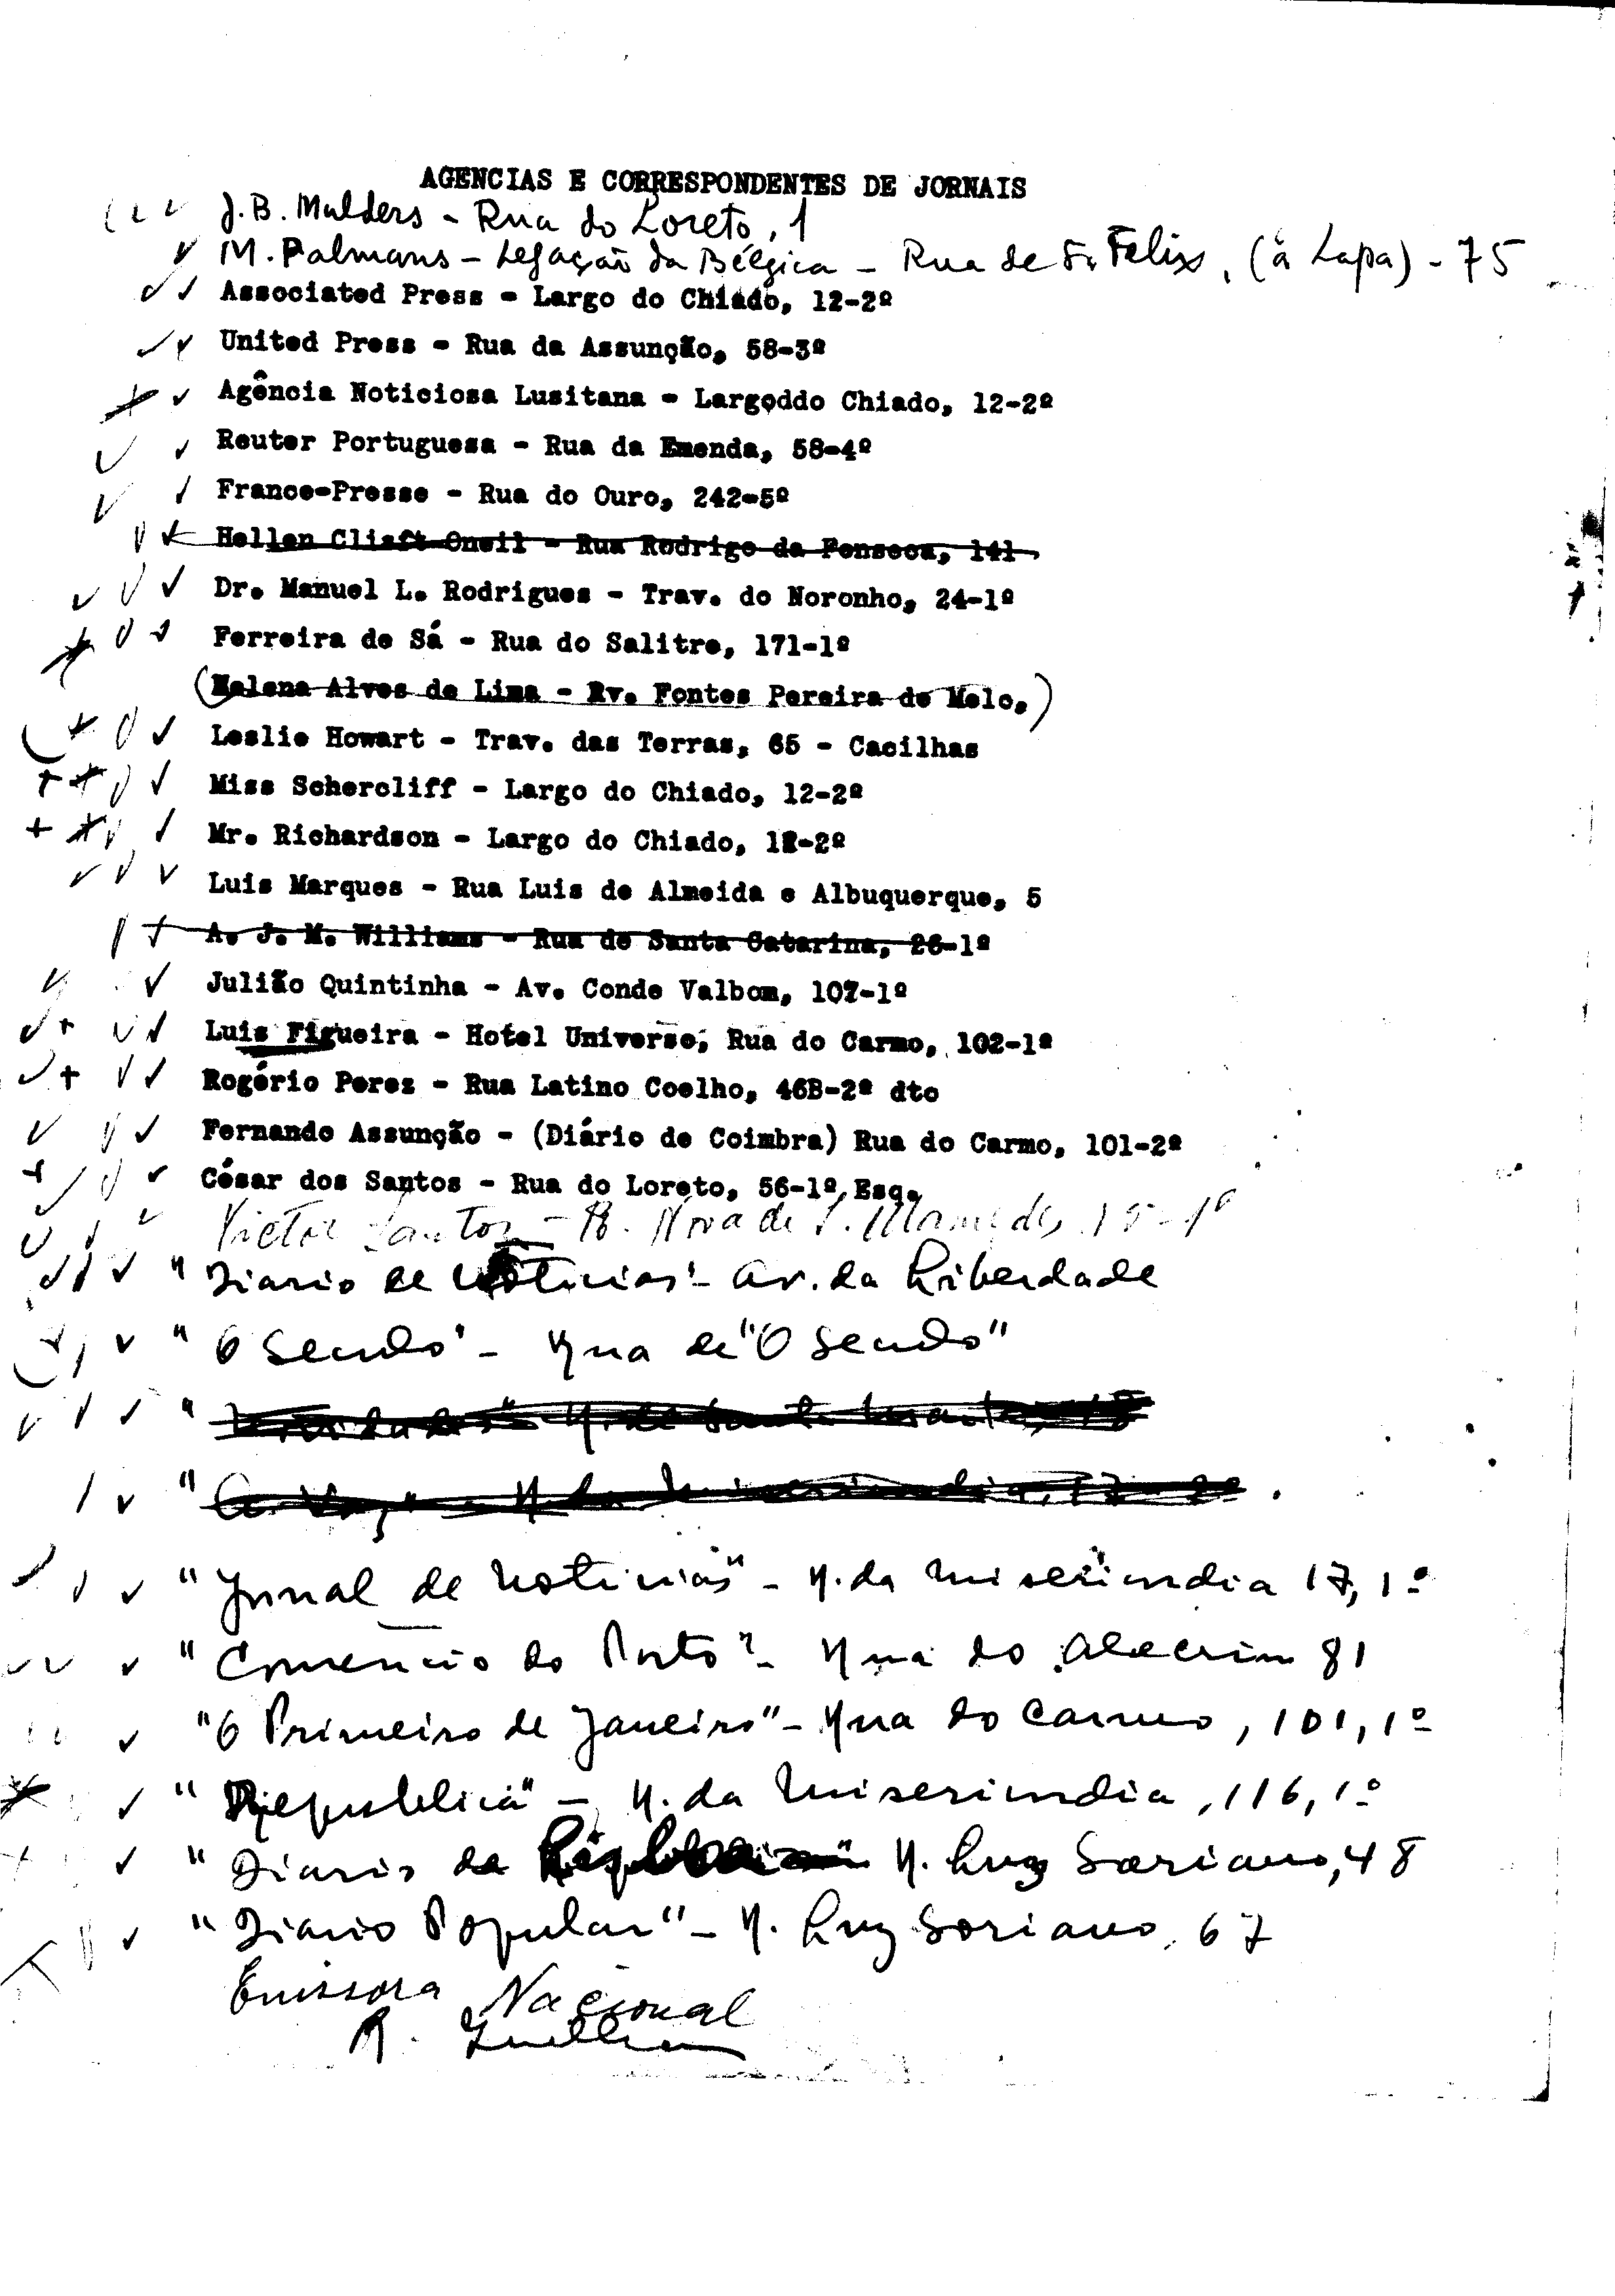 AGENCIAS E CORRESPONDENTES DE JORNAIS
J.B. Mulders - Rua do Loreto, 1
M. Palmans - Legação da Bélgica - Rua de S. Felix, (à Lapa) - 75
Associated Press - Largo do Chiado, 12-2º
United Press - Rua da Assunção, 58-3º
Agência Noticiosa Lusitana - Largoddo Chiado, 12-2º
Reuter Portuguesa - Rua da Emenda, 58-4º
France-Presse - Rua do Ouro, 242-5º
Hellen Clieft Oneil - Rua Rodrigo da Fonseca, 141
Dr. Manuel L. Rodrigues - Trav. do Noronho, 24-1º
Ferreira de Sá - Rua do Salitre, 171-1º
(Helena Alves de Lima - Av. Fontes Pereira de Melo,)
Leslie Howart - Trav. das Terras, 65 - Cacilhas
Miss Schercliff - Largo do Chiado, 12-2º
Mr. Richardson - Largo do Chiado, 12-2º
Luis Marques - Rua Luis de Almeida e Albuquerque, 5
A. J. M. Williams - Rua de Santa Catarina, 26-1º
Julião Quintinha - Av. Conde Valbom, 107-1º
Luis Figueira - Hotel Universo, Rua do Carmo, 102-1º
Rogério Perez - Rua Latino Coelho, 46B-2º dto
Fernando Assunção - (Diário de Coimbra) Rua do Carmo, 101-2º
César dos Santos - Rua do Loreto, 56-1º Esq.
Victor Santos - R. Nova de S. Mamede, 1º
"Diario de Noticias" - Av. da Liberdade
"O Seculo" - Rua de "O Seculo"
"Novidades" - R. de Santa Marta,
"A Voz" - R. da Misericordia, 17-2º
"Jornal de Noticias" - R. da Misericordia 17, 1º
"Comercio do Porto" - Rua do Alecrim 81
"O Primeiro de Janeiro" - Rua do Carmo, 101, 1º
"Republica" - R. da Misericordia, 116, 1º
"Diario de Lisboa" R. Luz Soriano, 48
"Diario Popular" - R. Luz Soriano, 67
Emissora Nacional
R.